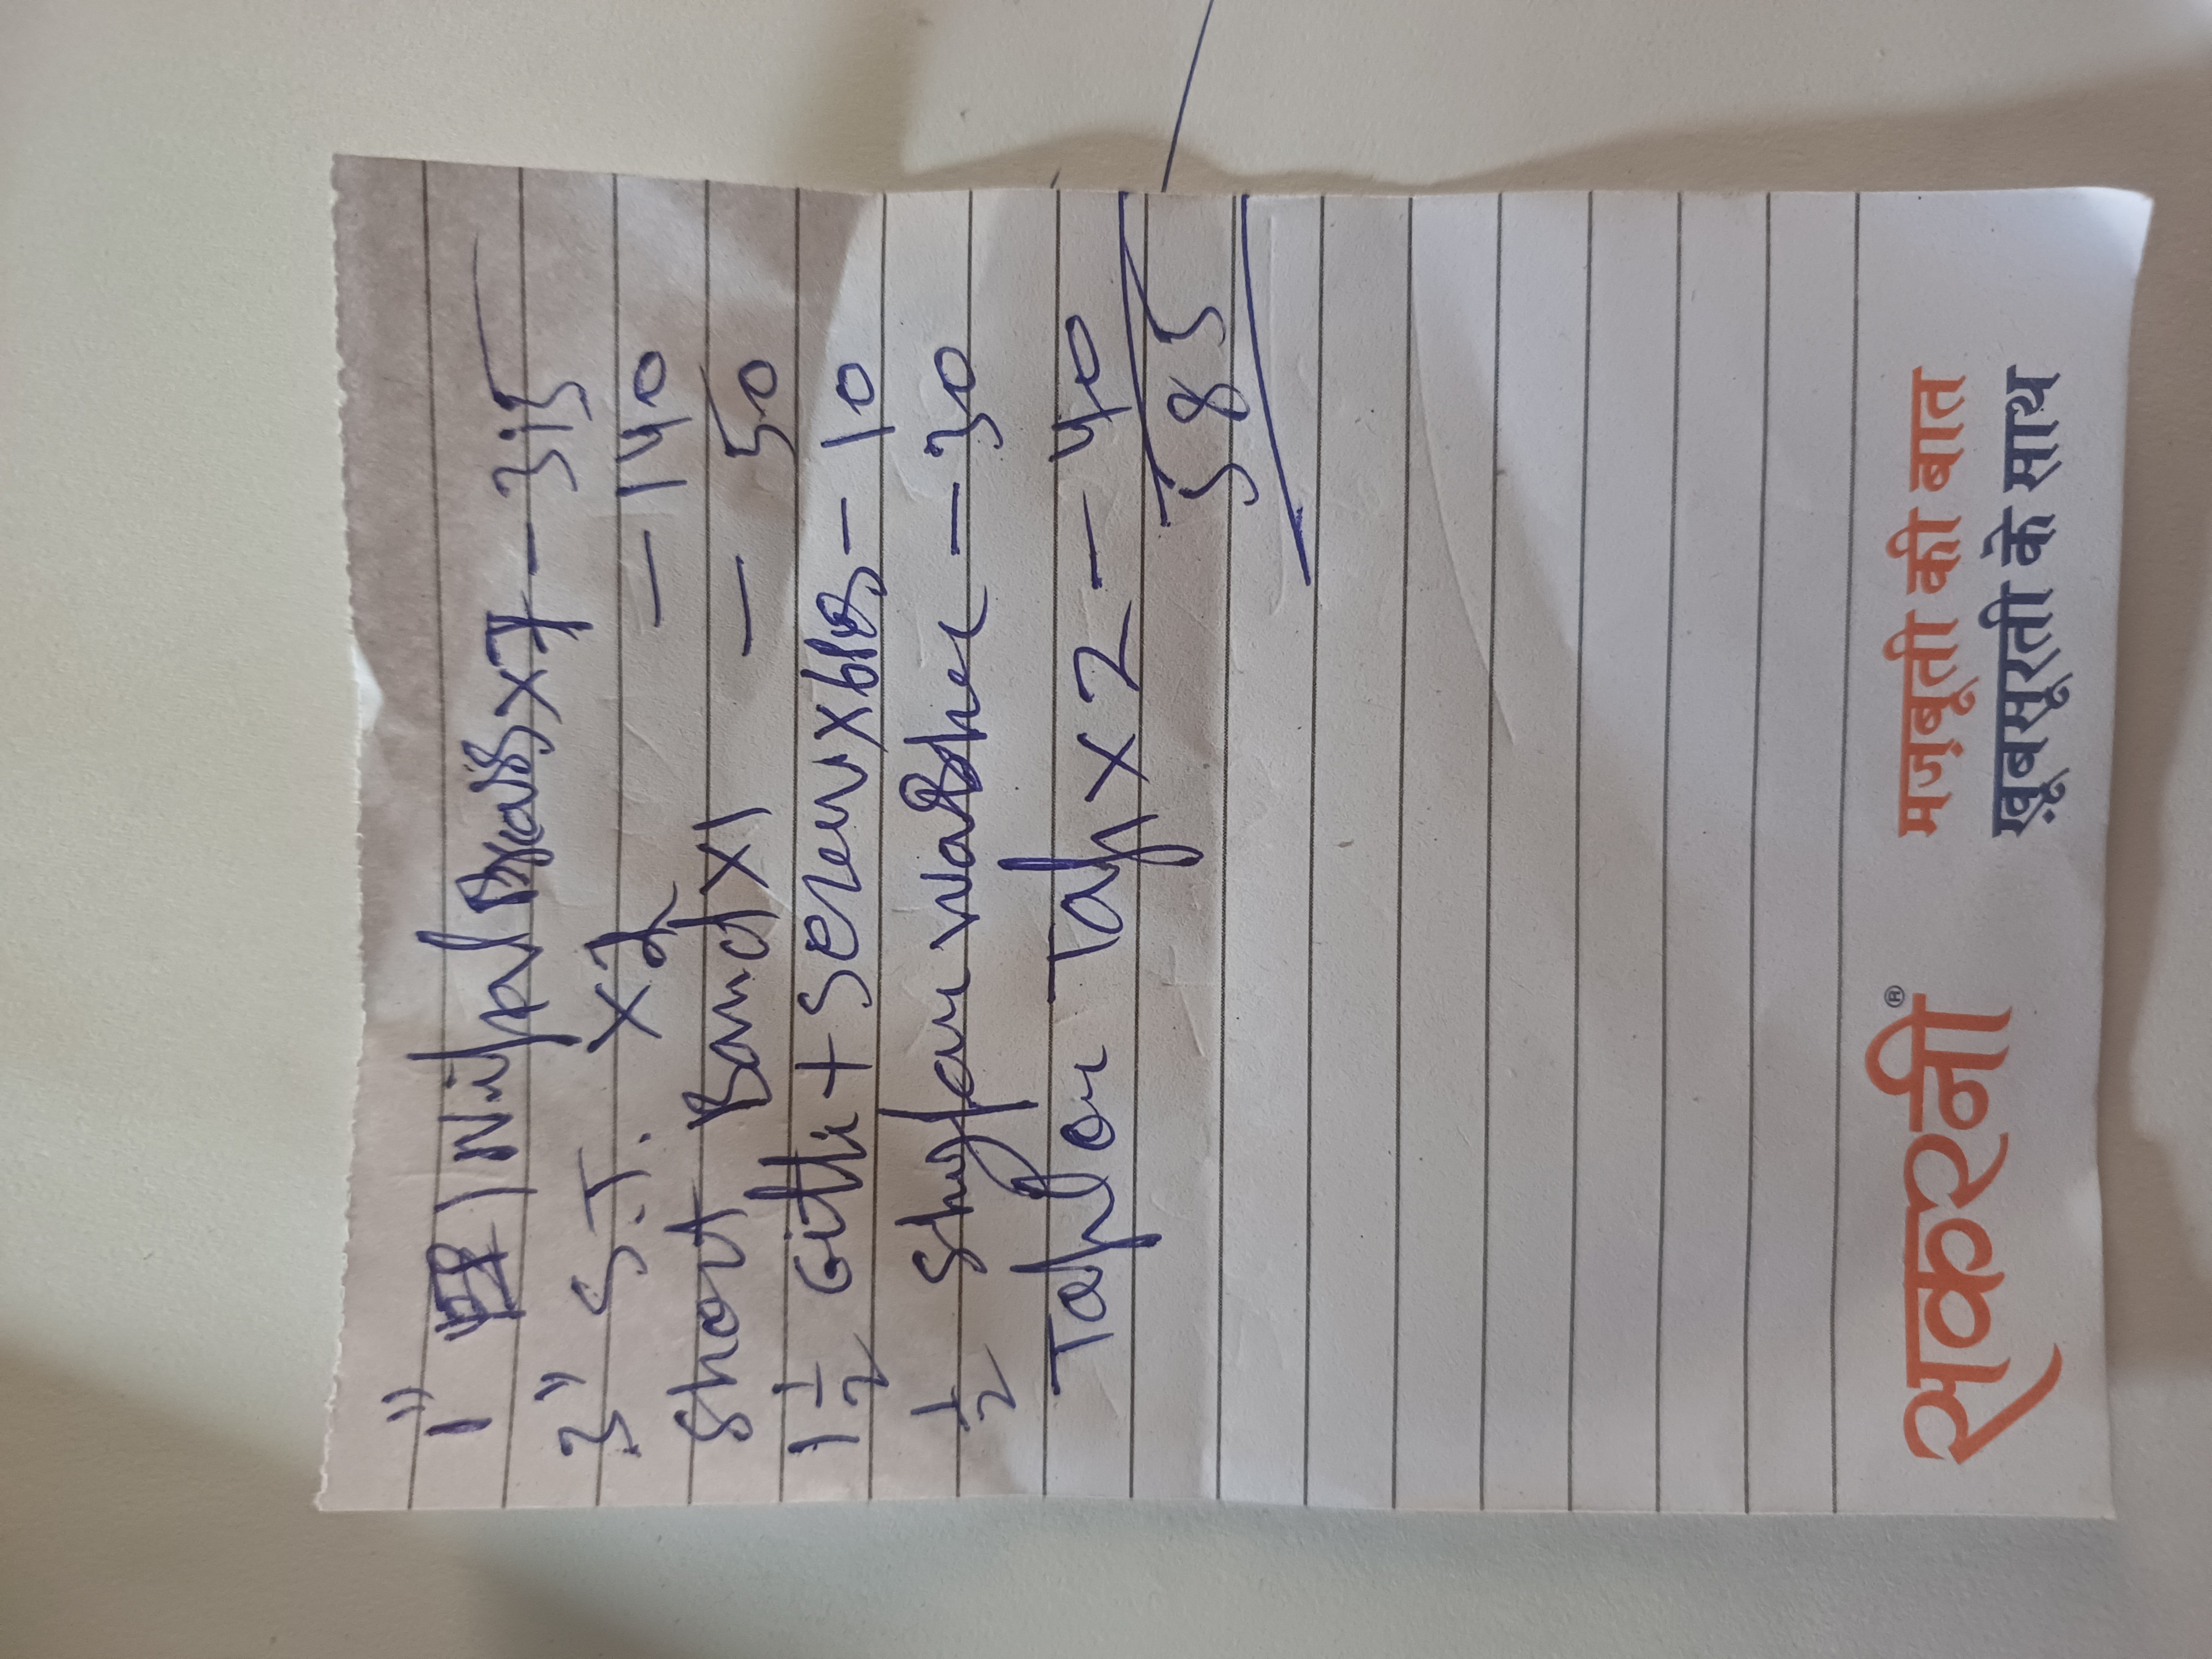 1" Nipal Brass x7 - 315
3" S.T. x2 - 140
Short Band x1 - 50
1 1/2 Gitti + Screw x 6 - 10
1/2 washer - 30
Taflon Taf x 2 - 40
585
साकरनी®
मज़बूती की बात
ख़ूबसूरती के साथ